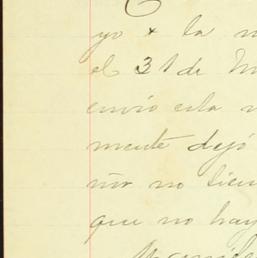 yo & la
el 31 de
envío esta
mente dejó
ñor no tien
que no hay